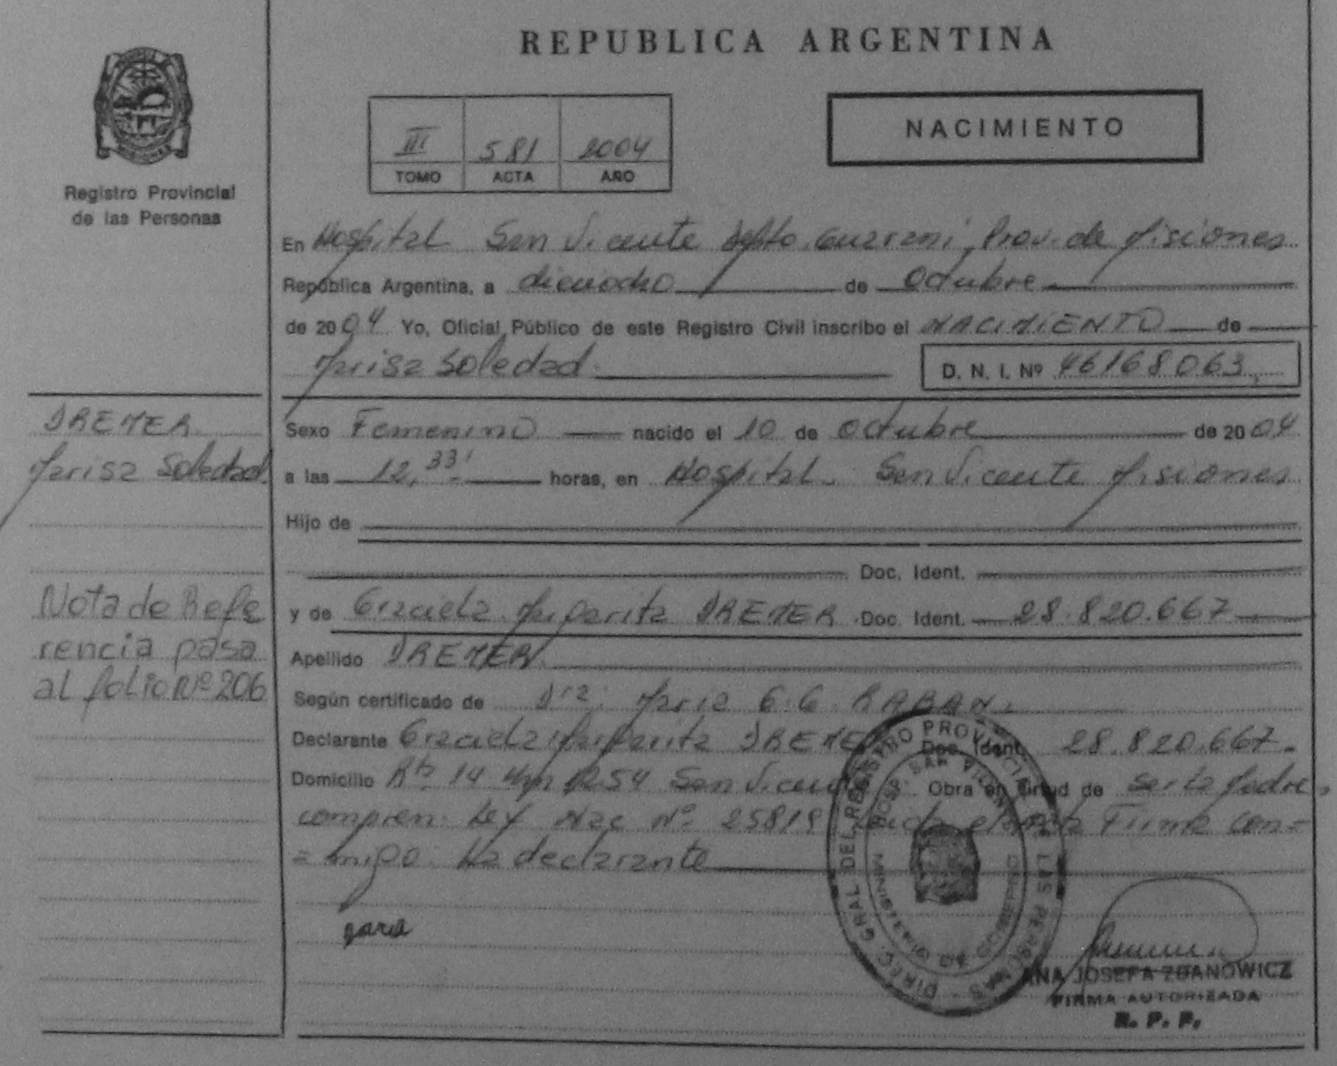 REPUBLICA ARGENTINA
III 581 2004
TOMO ACTA AÑO
NACIMIENTO
Registro Provincial
de las Personas
En Hospital San Vicente Depto. Guarani, Prov. de Misiones
República Argentina, a dieciocho de Octubre
de 2004 Yo, Oficial Público de este Registro Civil inscribo el NACIMIENTO de
Marisa Soledad D. N. I. Nº 46168063
DREMER
Marisa Soledad
Sexo Femenino nacido el 10 de Octubre de 2004
a las 12,33' horas, en Hospital San Vicente Misiones
Hijo de
Doc. Ident.
y de Graciela Margarita DREMER Doc. Ident. 28.820.667
Apellido DREMER
Nota de Refe
rencia pasa
al folio Nº 206
Según certificado de Dra. G.G. RABAN
Declarante Graciela Margarita DREMER Doc. Ident. 28.820.667.
Domicilio Rta 14 Km 1254 San Vicente Obra en virtud de ser la Madre,
compren. Ley Nac Nº 25819 Leida el acta Firma con=
=migo La declarante
DIREC. GRAL DEL REGISTRO PROVINCIAL DE LAS PERSONAS
HOSP. SAN VICENTE
ANA JOSEFA ZDANOWICZ
FIRMA AUTORIZADA
R. P. P.